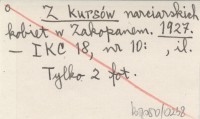 Z kursów narciarskich
kobiet w Zakopanem. 1927.
— IKC 18, nr 10: , il.
Tylko 2 fot.